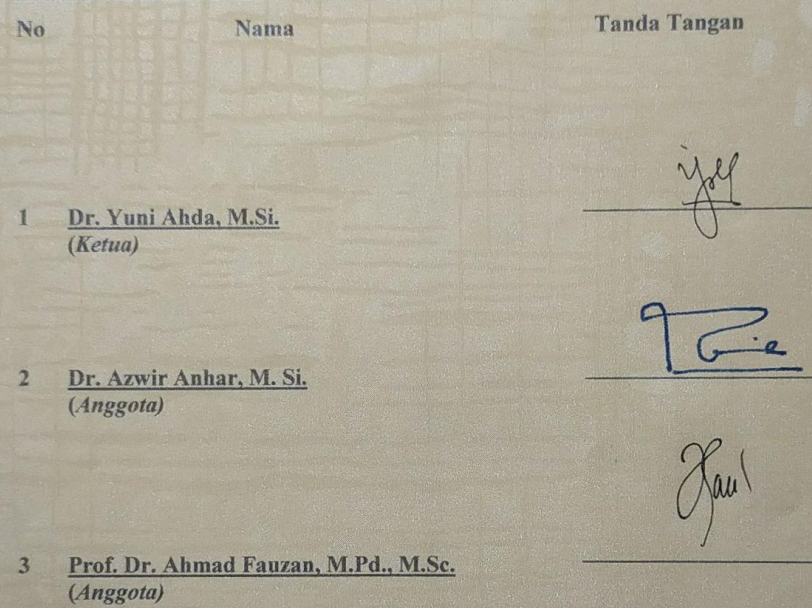 No Nama Tanda Tangan
1 Dr. Yuni Ahda, M.Si.
(Ketua)
2 Dr. Azwir Anhar, M. Si.
(Anggota)
3 Prof. Dr. Ahmad Fauzan, M.Pd., M.Sc.
(Anggota)